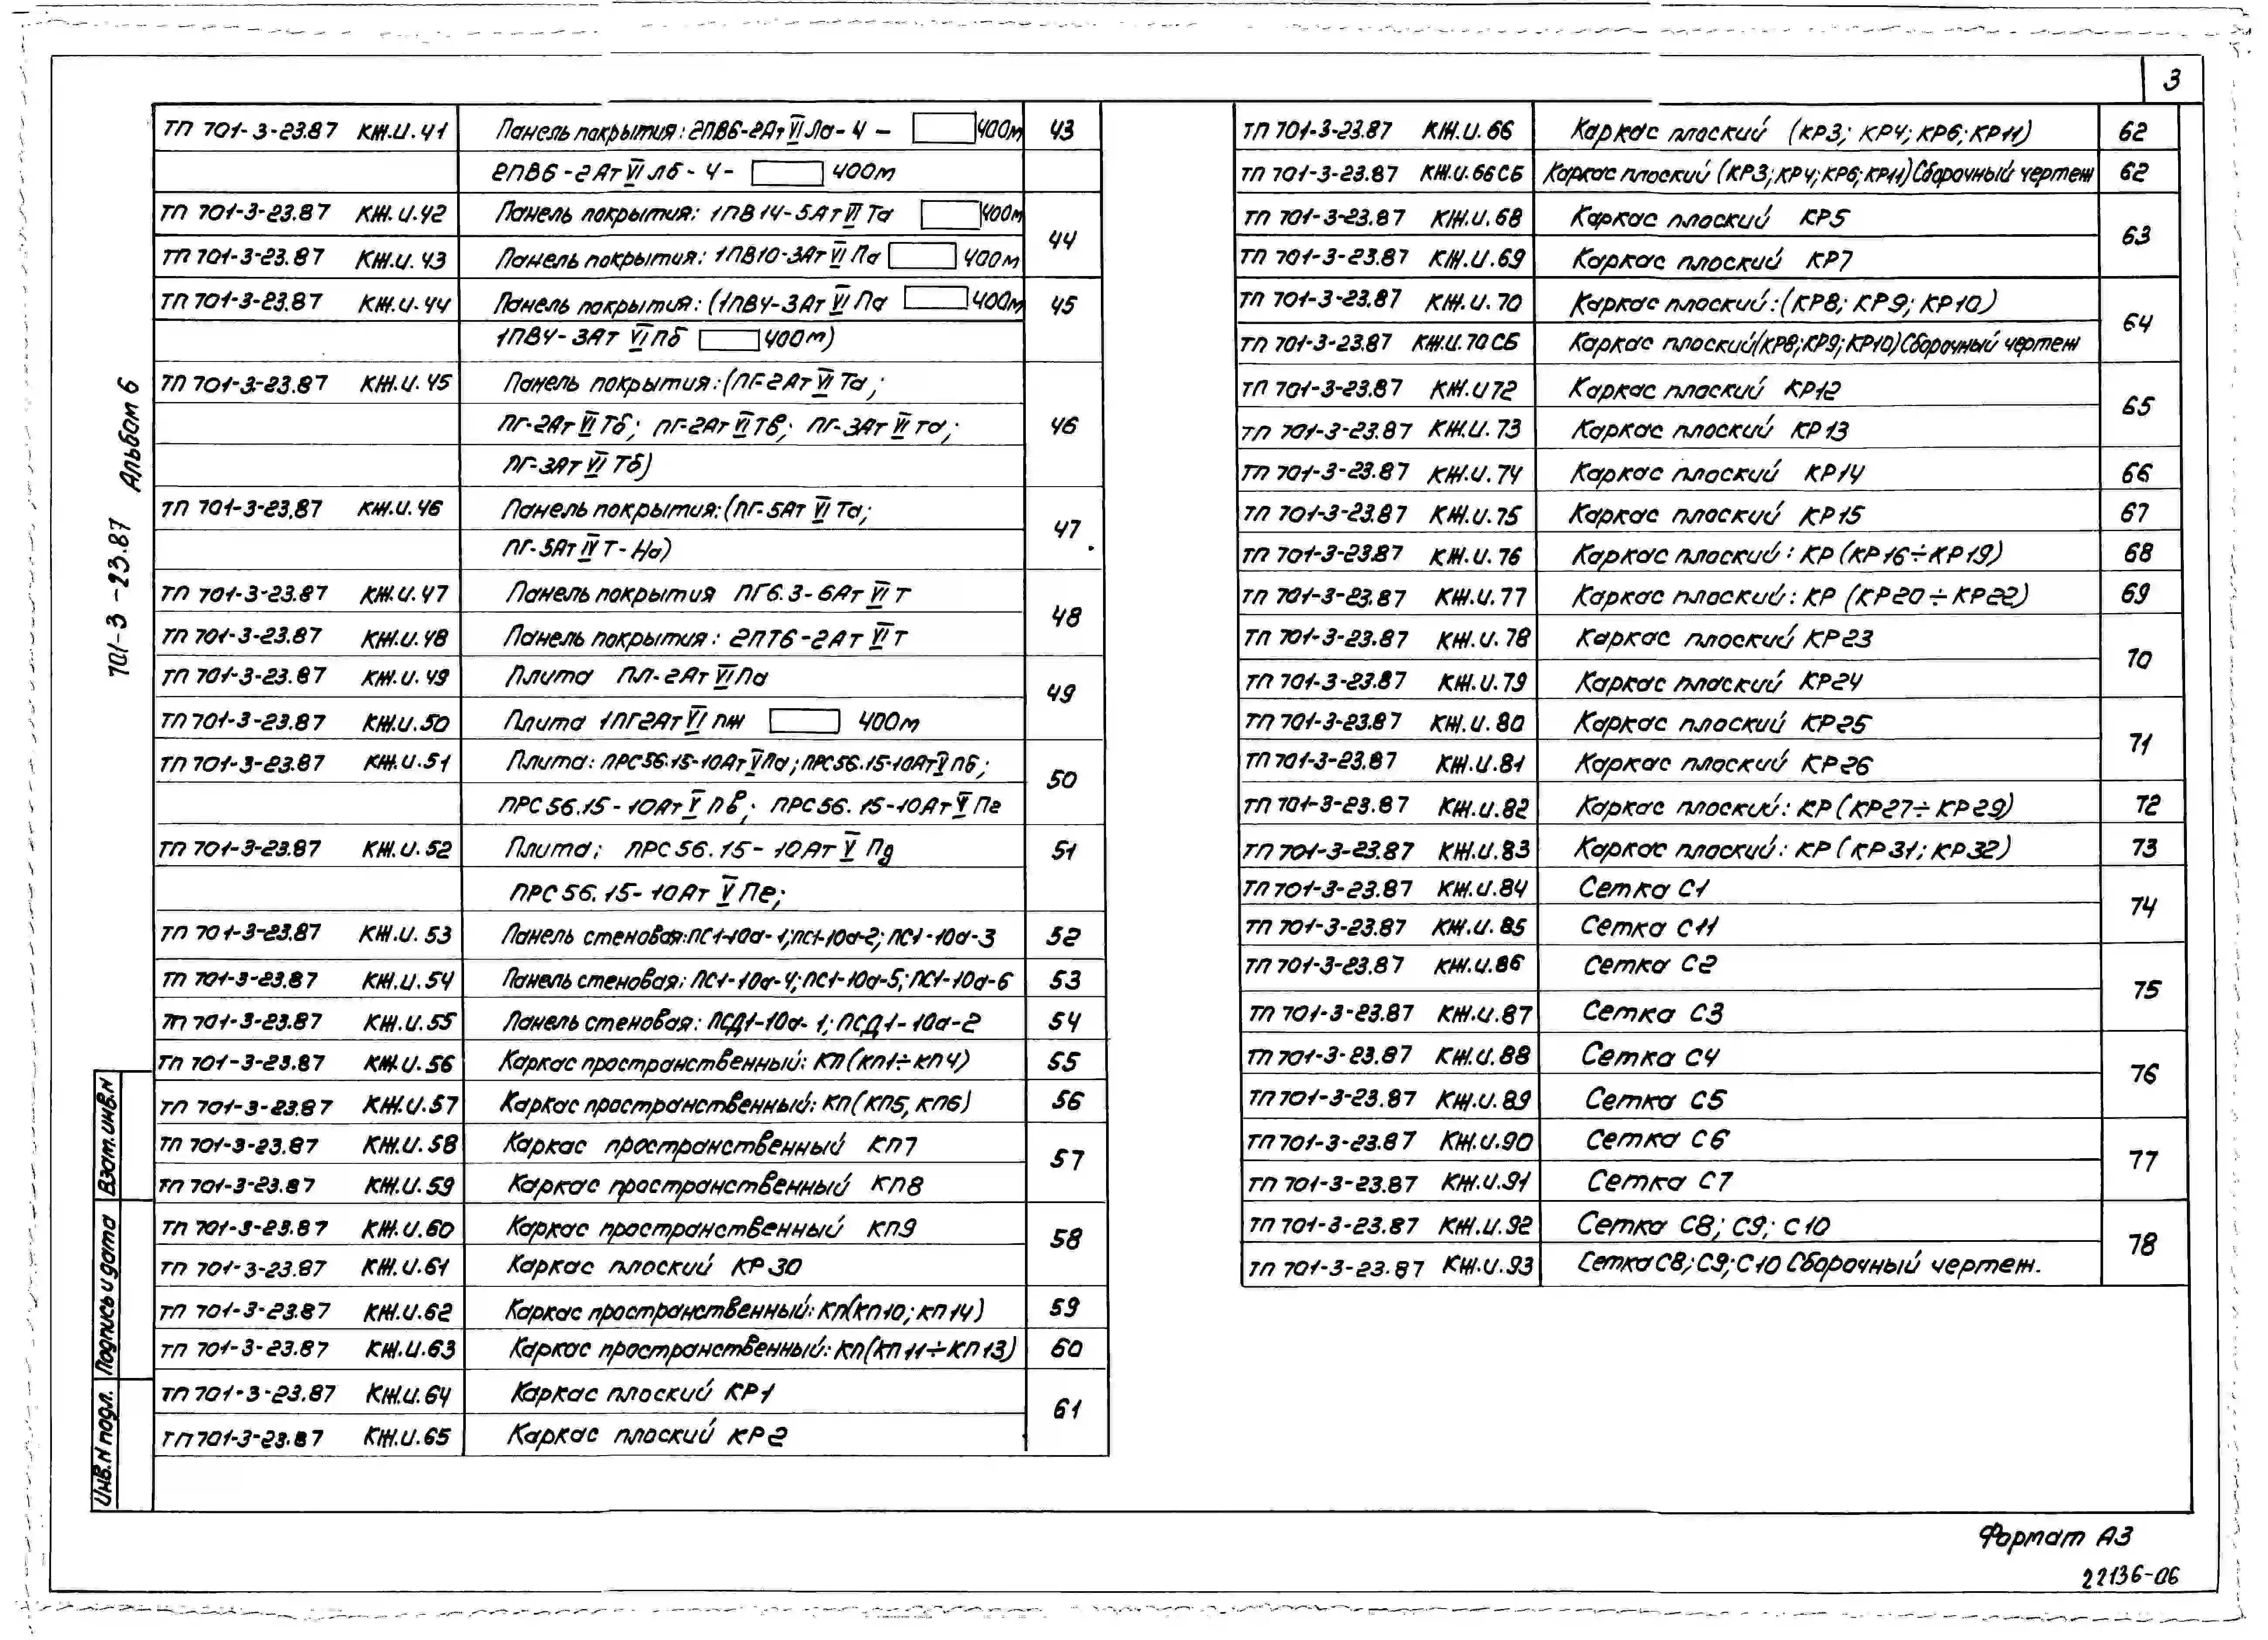 3
ТП 701-3-23.87 КЖ.И.41 Панель покрытия: 2ПВ6-2АтVIЛа-4- 400м 43
2ПВ6-2АтVIЛб-4- 400м
ТП 701-3-23.87 КЖ.И.42 Панель покрытия: 1ПВ14-5АтVIТа 400м 44
ТП 701-3-23.87 КЖ.И.43 Панель покрытия: 1ПВ10-3АтVIПа 400м
ТП 701-3-23.87 КЖ.И.44 Панель покрытия: (1ПВ4-3АтVIПа 400м 45
1ПВ4-3АтVIПб 400м)
ТП 701-3-23.87 КЖ.И.45 Панель покрытия: (ПГ-2АтVIТа;
ПГ-2АтVIТб; ПГ-2АтVIТв; ПГ-3АтVIТа; 46
ПГ-3АтVIТб)
ТП 701-3-23.87 КЖ.И.46 Панель покрытия: (ПГ-5АтVIТа; 47
ПГ-5АтIVТ-На)
ТП 701-3-23.87 КЖ.И.47 Панель покрытия ПГ6.3-6АтVIТ 48
ТП 701-3-23.87 КЖ.И.48 Панель покрытия: 2ПТ6-2АтVIТ
ТП 701-3-23.87 КЖ.И.49 Плита ПЛ-2АтVIПа 49
ТП 701-3-23.87 КЖ.И.50 Плита 1ПГ2АтVIпж 400м
ТП 701-3-23.87 КЖ.И.51 Плита: ПРС56.15-10АтVПа; ПРС56.15-10АтVПб; 50
ПРС56.15-10АтVПв; ПРС56.15-10АтVПг
ТП 701-3-23.87 КЖ.И.52 Плита; ПРС56.15-10АтVПд 51
ПРС56.15-10АтVПе;
ТП 701-3-23.87 КЖ.И.53 Панель стеновая: ПС1-10а-1; ПС1-10а-2; ПС1-10а-3 52
ТП 701-3-23.87 КЖ.И.54 Панель стеновая; ПС1-10а-4; ПС1-10а-5; ПС1-10а-6 53
ТП 701-3-23.87 КЖ.И.55 Панель стеновая: ПСД1-10а-1; ПСД1-10а-2 54
ТП 701-3-23.87 КЖ.И.56 Каркас пространственный: КП(КП1÷КП4) 55
ТП 701-3-23.87 КЖ.И.57 Каркас пространственный: КП(КП5, КП6) 56
ТП 701-3-23.87 КЖ.И.58 Каркас пространственный КП7 57
ТП 701-3-23.87 КЖ.И.59 Каркас пространственный КП8
ТП 701-3-23.87 КЖ.И.60 Каркас пространственный КП9 58
ТП 701-3-23.87 КЖ.И.61 Каркас плоский КР30
ТП 701-3-23.87 КЖ.И.62 Каркас пространственный: КП(КП10; КП14) 59
ТП 701-3-23.87 КЖ.И.63 Каркас пространственный: КП(КП11÷КП13) 60
ТП 701-3-23.87 КЖ.И.64 Каркас плоский КР1 61
ТП 701-3-23.87 КЖ.И.65 Каркас плоский КР2
ТП 701-3-23.87 КЖ.И.66 Каркас плоский (КР3; КР4; КР6; КР11) 62
ТП 701-3-23.87 КЖ.И.66СБ Каркас плоский (КР3; КР4; КР6; КР11) Сборочный чертеж 62
ТП 701-3-23.87 КЖ.И.68 Каркас плоский КР5 63
ТП 701-3-23.87 КЖ.И.69 Каркас плоский КР7
ТП 701-3-23.87 КЖ.И.70 Каркас плоский: (КР8; КР9; КР10) 64
ТП 701-3-23.87 КЖ.И.70СБ Каркас плоский (КР8; КР9; КР10) Сборочный чертеж
ТП 701-3-23.87 КЖ.И72 Каркас плоский КР12 65
ТП 701-3-23.87 КЖ.И.73 Каркас плоский КР13
ТП 701-3-23.87 КЖ.И.74 Каркас плоский КР14 66
ТП 701-3-23.87 КЖ.И.75 Каркас плоский КР15 67
ТП 701-3-23.87 КЖ.И.76 Каркас плоский: КР (КР16÷КР19) 68
ТП 701-3-23.87 КЖ.И.77 Каркас плоский: КР (КР20÷КР22) 69
ТП 701-3-23.87 КЖ.И.78 Каркас плоский КР23 70
ТП 701-3-23.87 КЖ.И.79 Каркас плоский КР24
ТП 701-3-23.87 КЖ.И.80 Каркас плоский КР25 71
ТП 701-3-23.87 КЖ.И.81 Каркас плоский КР26
ТП 701-3-23.87 КЖ.И.82 Каркас плоский: КР (КР27÷КР29) 72
ТП 701-3-23.87 КЖ.И.83 Каркас плоский: КР (КР31; КР32) 73
ТП 701-3-23.87 КЖ.И.84 Сетка С1 74
ТП 701-3-23.87 КЖ.И.85 Сетка С11
ТП 701-3-23.87 КЖ.И.86 Сетка С2 75
ТП 701-3-23.87 КЖ.И.87 Сетка С3
ТП 701-3-23.87 КЖ.И.88 Сетка С4 76
ТП 701-3-23.87 КЖ.И.89 Сетка С5
ТП 701-3-23.87 КЖ.И.90 Сетка С6 77
ТП 701-3-23.87 КЖ.И.91 Сетка С7
ТП 701-3-23.87 КЖ.И.92 Сетка С8; С9; С10 78
ТП 701-3-23.87 КЖ.И.93 Сетка С8; С9; С10 Сборочный чертеж.
701-3-23.87 Альбом 6
Взам.инв.N
Подпись и дата
Инв.N подл.
Формат А3
22136-06